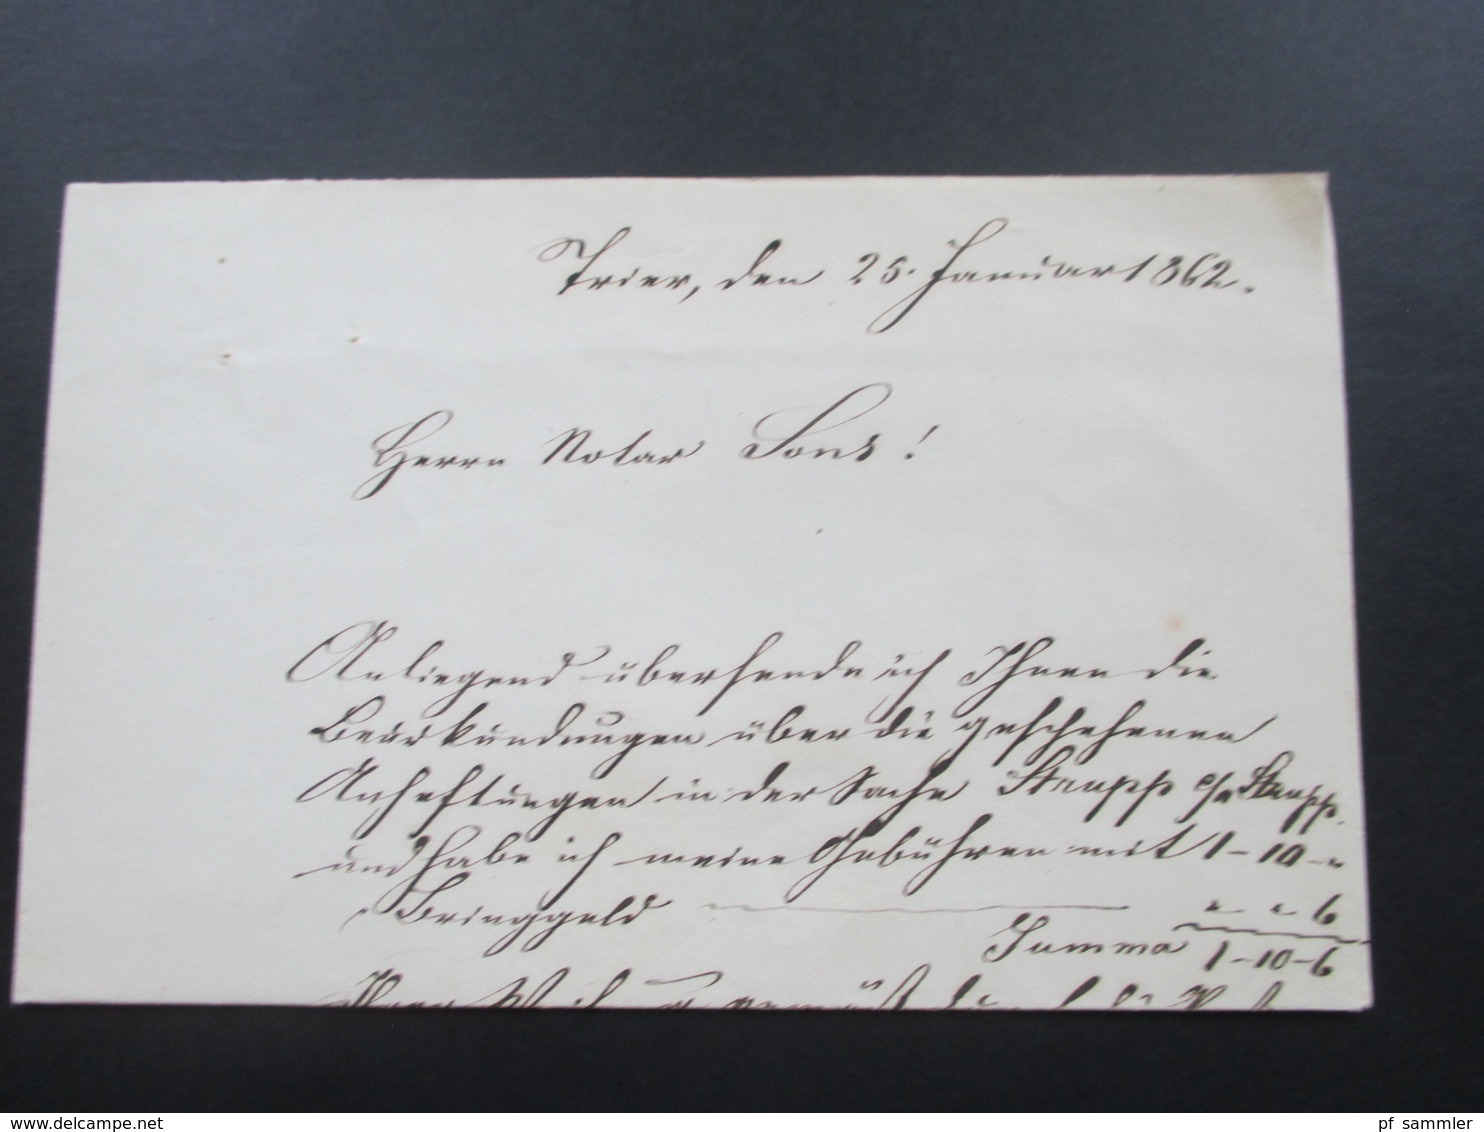 Trier, den 25. Januar 1862.
Herrn Notar Sons!
Anliegend übersende ich Ihnen die
Beurkundungen über die geschehenen
Anheftungen in der Sache Staupp c/a Staupp.
und habe ich meine Gebühren mit 1-10-"
Bringgeld " " 6
Summa 1-10-6
Ihrer gemäß
www.delcampe.net
pf_sammler